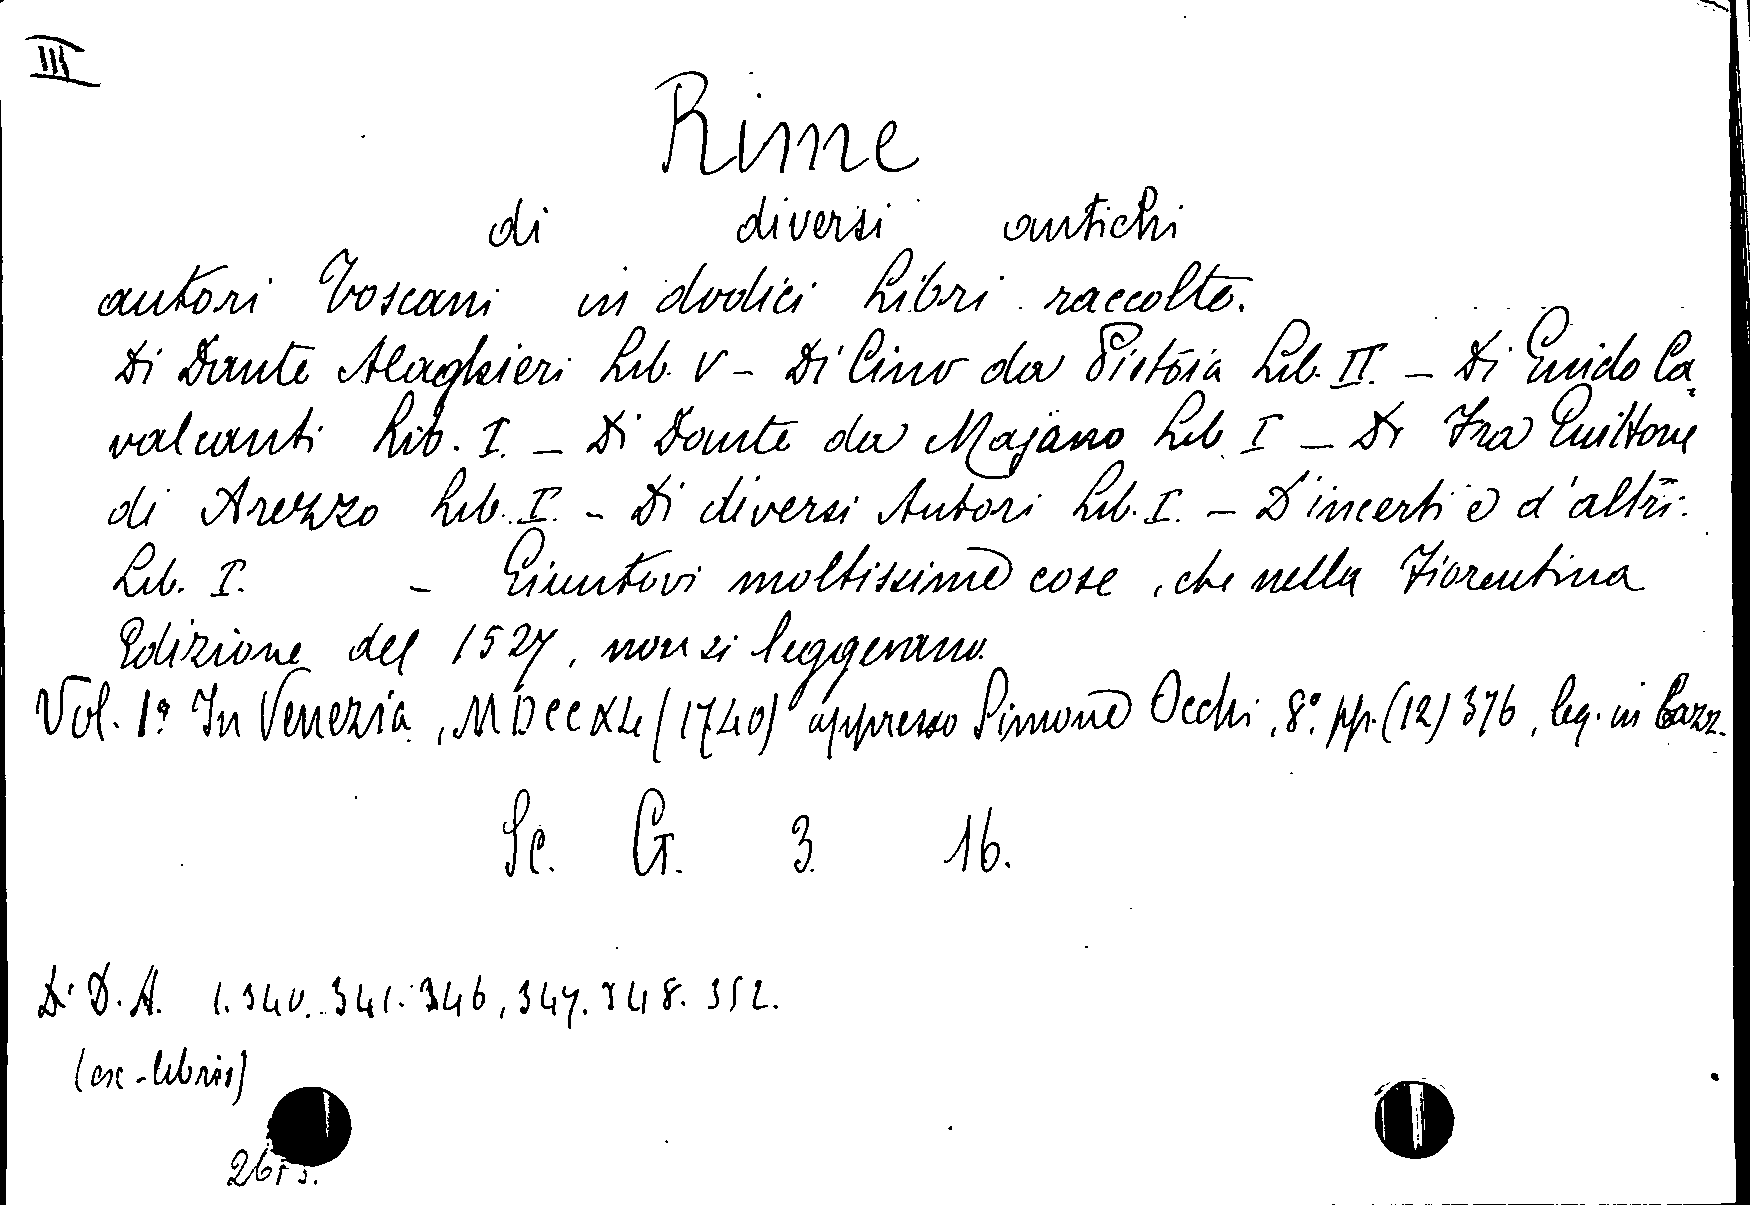 III
Rime
di diversi antichi
autori Toscani in dodici Libri raccolte.
Di Dante Alaghieri Lib. V - Di Cino da Pistoia Lib. II. - Di Guido Ca,
valcanti Lib. I. - Di Dante da Majano Lib. I - Di Fra Guittone
di Arezzo Lib. I. - Di diversi Autori Lib. I. - D'incerti e d'altri.
Lib. I. - Giuntovi moltissime cose, che nella Fiorentina
Edizione del 1527, non si leggevano.
Vol. 1º In Venezia, MDCCXL (1740) appresso Simone Occhi, 8º. pp. (12) 376, leg. in Bazz.
Sc. G. 3. 16.
Di D. A. 1. 340. 341. 346, 347. 348. 352.
(ex-libris)